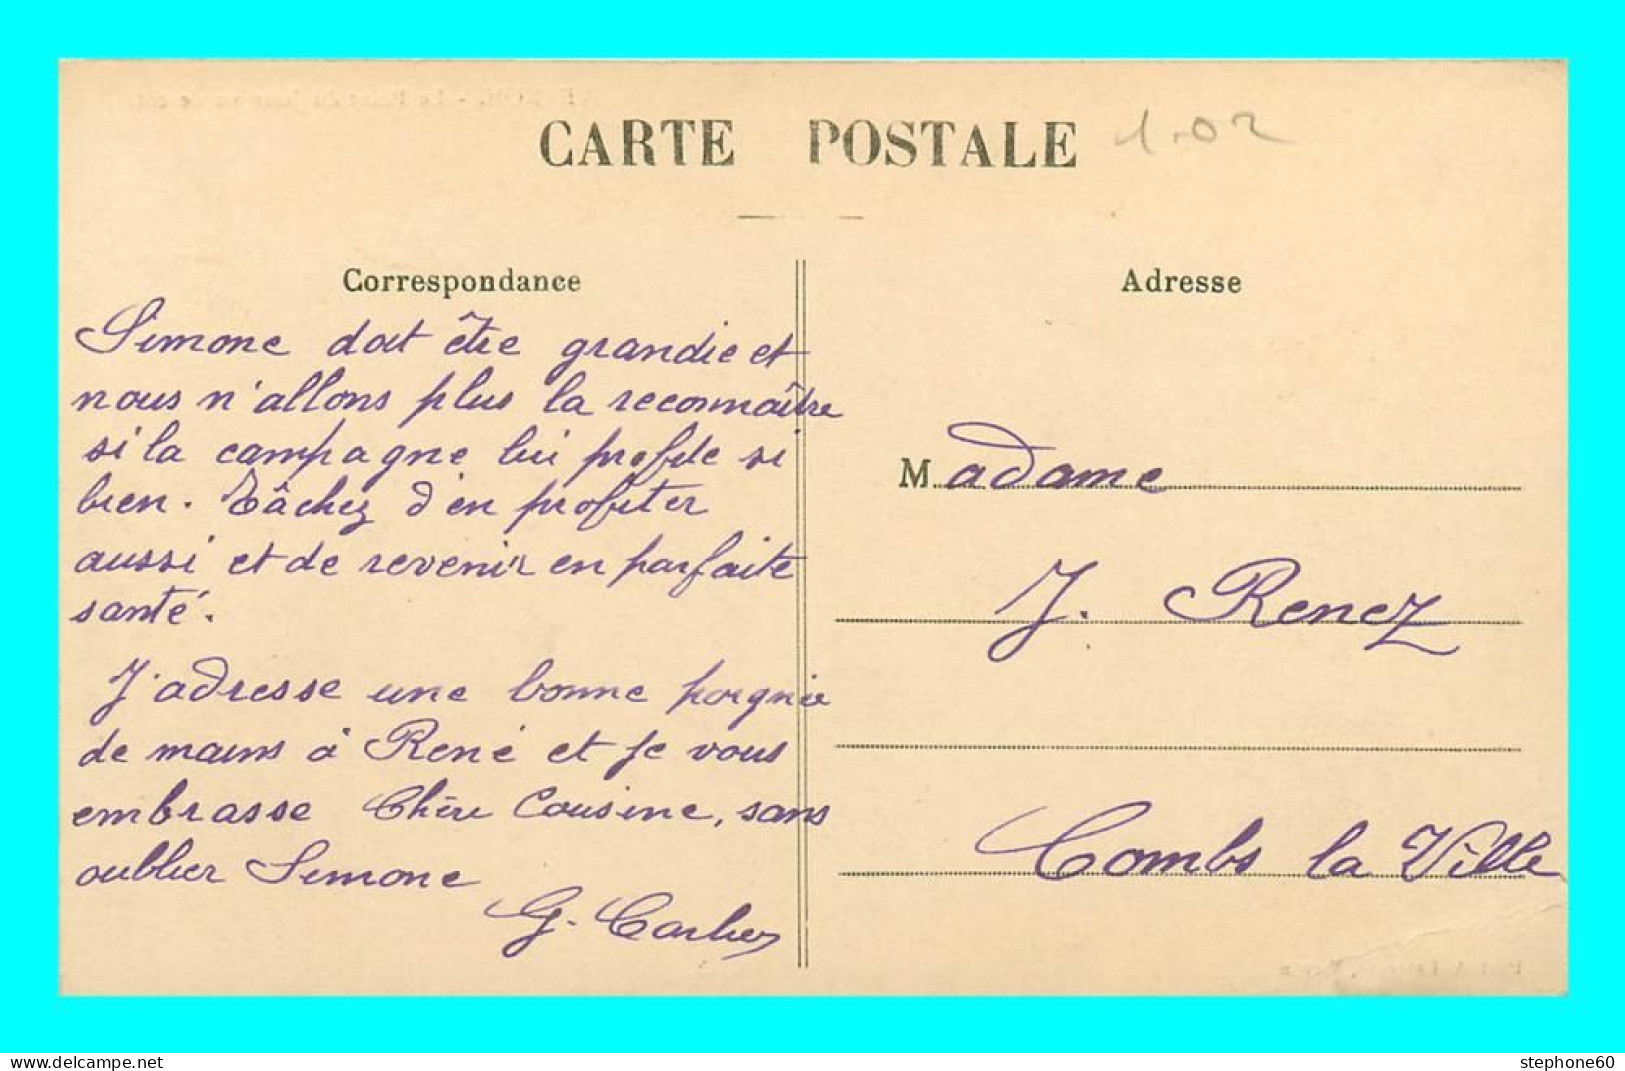 CARTE POSTALE 1.02
Correspondance
Simone doit être grandie et
nous n'allons plus la reconnaître
si la campagne lui profite si
bien. Tâchez d'en profiter
aussi et de revenir en parfaite
santé.
J'adresse une bonne poignée
de mains à René et je vous
embrasse Chère Cousine, sans
oublier Simone
G.
Adresse
Madame
J. Renez
Combs la Ville
stephone60